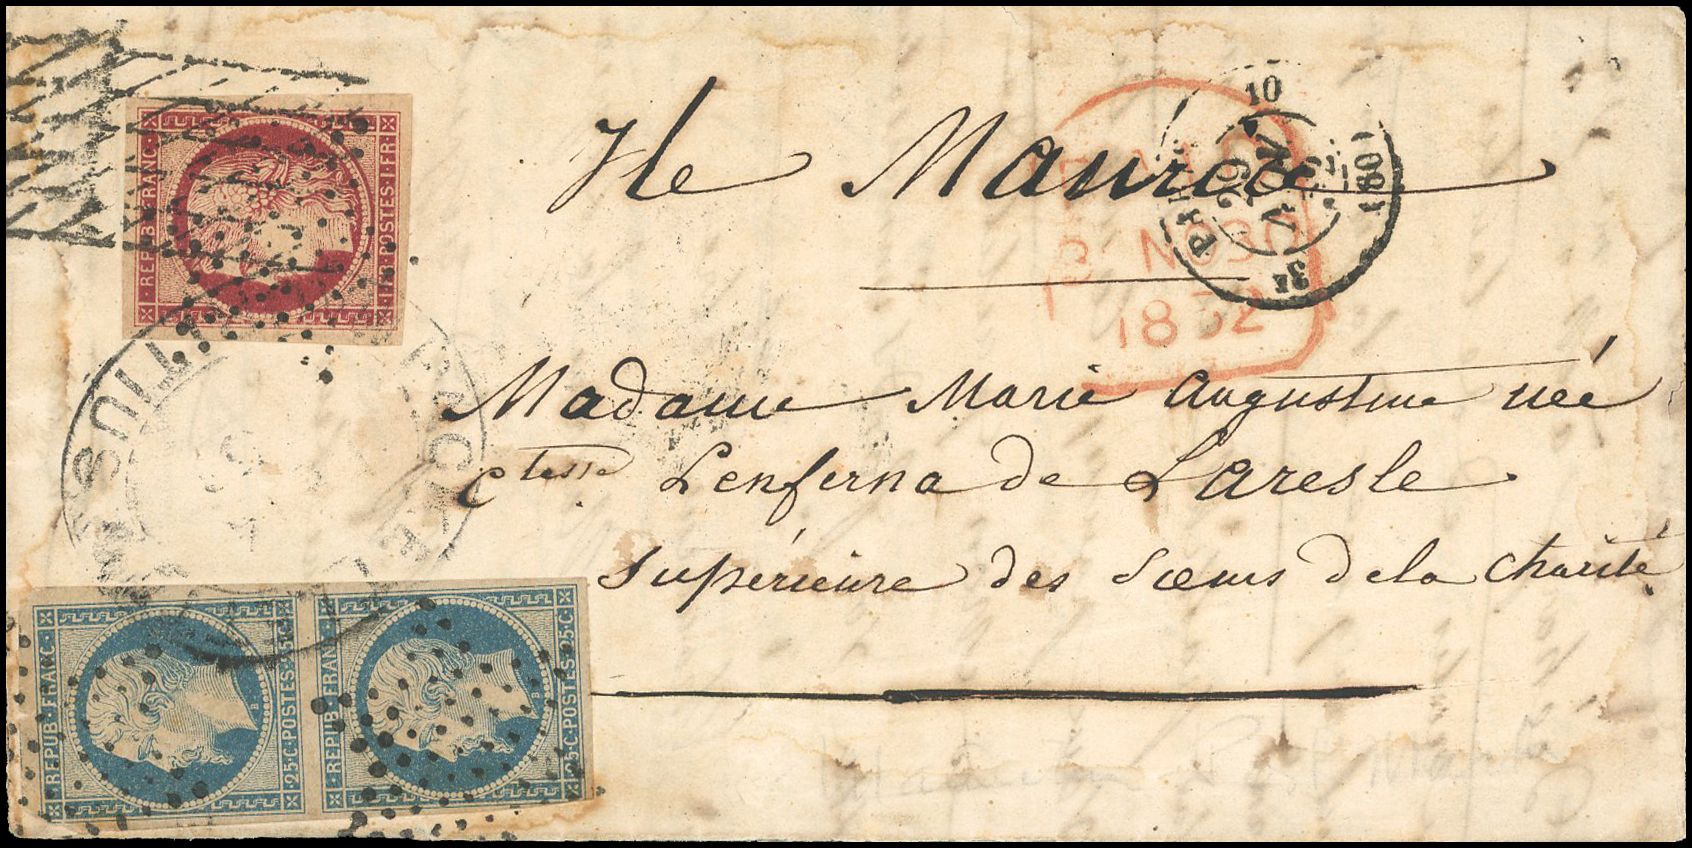 Ile Maurice
Madame Marie Augustine née
Ctesse Lenferna de Laresle
Supérieure des Sœurs de la Charité
REPUB·FRANC·
1·FR·POSTES·1·FR
REPUB·FRANC·
25·C·POSTES·25·C·
REPUB·FRANC·
25·C·POSTES·25·C·
10
29
NOV
52
(60)
NO30
1852
PACKET